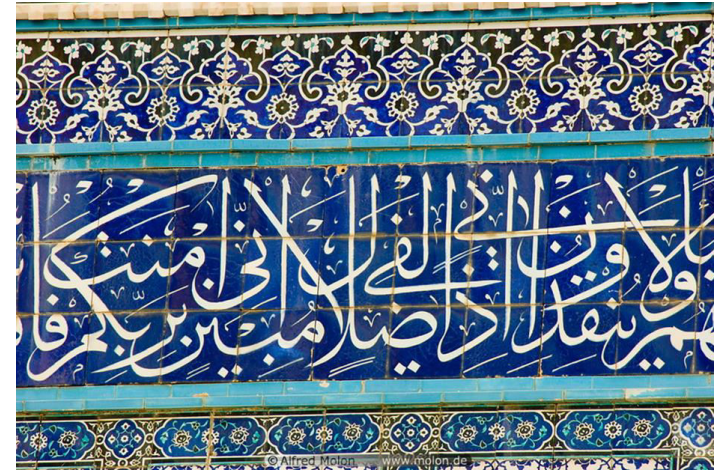 ولا ينقذون انى اذا لفى ضلال مبين انى امنت بربكم فا
© Alfred Molon www.molon.de